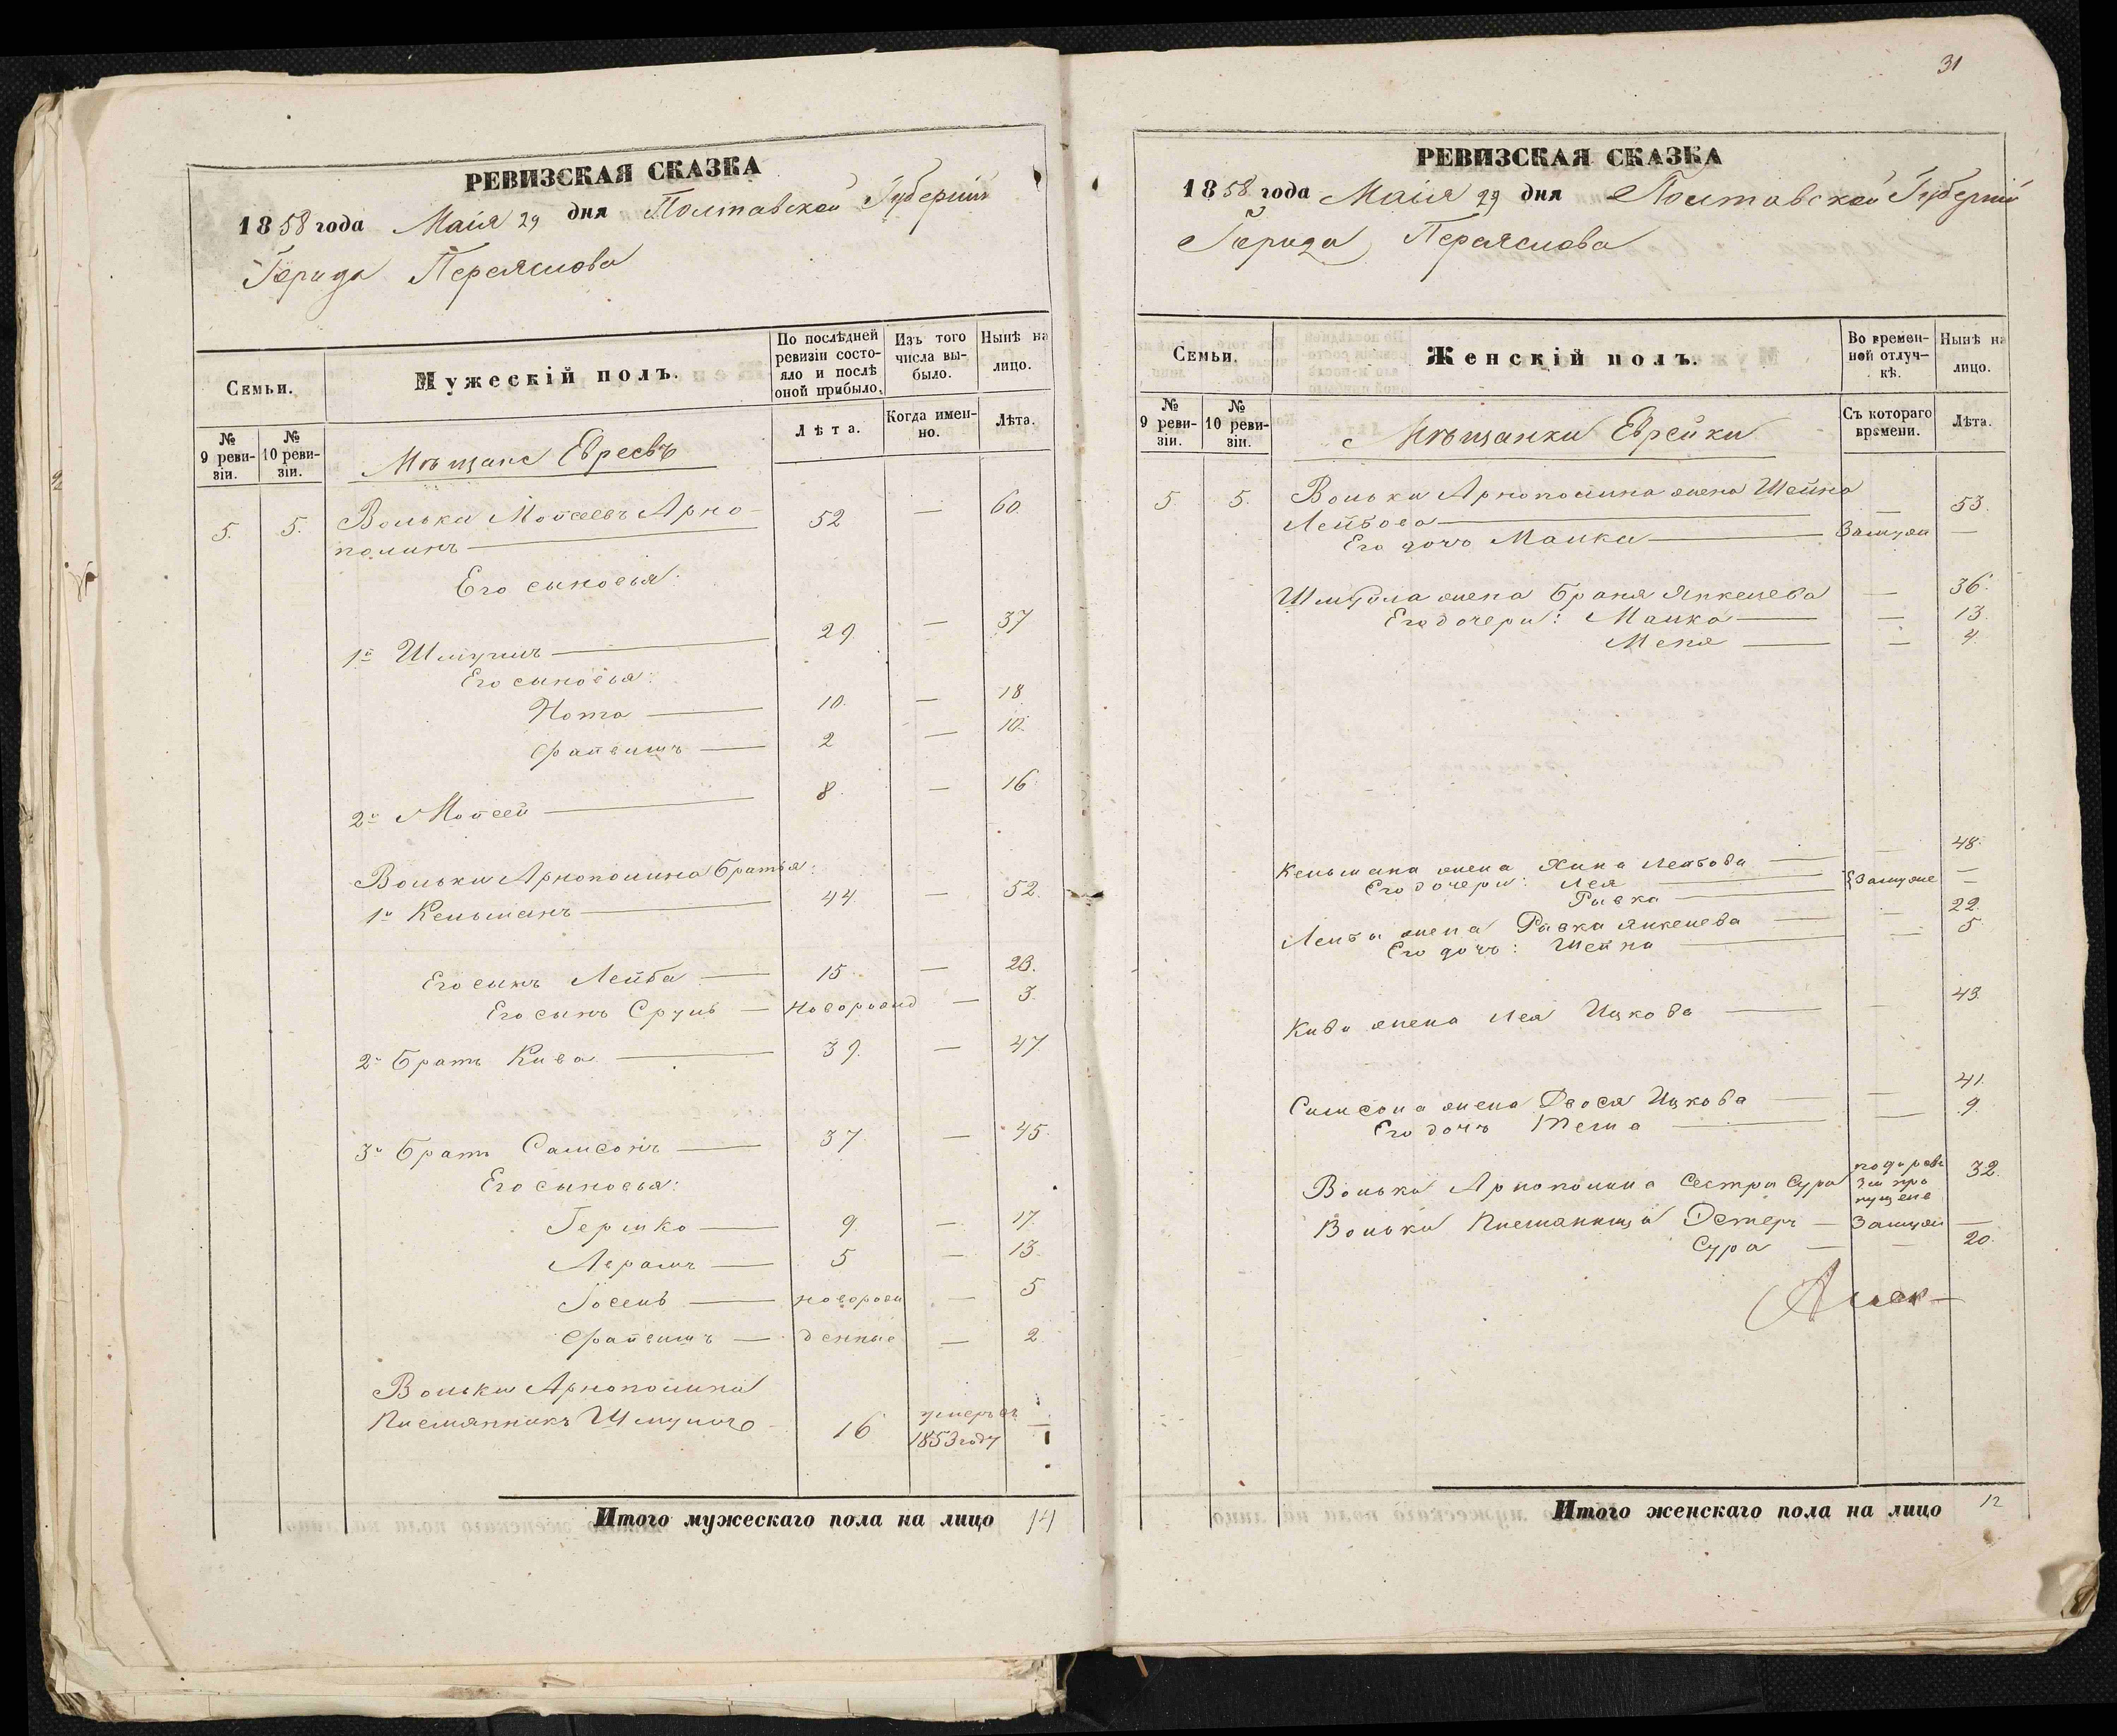 РЕВИЗСКАЯ СКАЗКА
1858 года Маія 29 дня Полтавской Губерніи
Города Переяслова
Семьи.
Мужескій полъ.
По послѣдней ревизіи состояло и послѣ оной прибыло.
Изъ того числа выбыло.
Нынѣ на лицо.
№ 9 ревизіи.
№ 10 ревизіи.
Лѣта.
Когда именно.
Лѣта.
Мѣщане Евреевъ
5. 5. Волька Мовсеевъ Арно-
полинъ 52 — 60.
Его сыновья:
1й Шмуиль 29. — 37
Его сыновья:
Нота 10. — 18
Файвишъ 2 — 10.
2й Мовсей 8. — 16
Вольки Арнополина братья:
1й Кельманъ 44. — 52.
Его сынъ Лейба 15 — 23.
Его сынъ Сруль — новорожд — 3.
2й братъ Кива 39. — 47.
3й братъ Самсонъ 37 — 45.
Его сыновья:
Гершко 9. — 17.
Абрамъ 5 — 13.
Іосель новорож — 5
Файвишъ — денные — 2.
Вольки Арнополина
Племянникъ Шмуило 16 умеръ въ 1853 году —
Итого мужескаго пола на лицо 14
31
РЕВИЗСКАЯ СКАЗКА
1858 года Маія 29 дня Полтавской Губерніи
Города Переяслова
Семьи.
Женскій полъ.
Во временной отлучкѣ.
Нынѣ на лицо.
№ 9 ревизіи.
№ 10 ревизіи.
Съ котораго времени.
Лѣта.
Мѣщанки Еврейки
5. 5. Вольки Арнополина жена Шейна
Лейбова — 53.
Его дочь Малка — Замужем —
Шмуйла жена Браня Янкелева — 36.
Его дочери: Малка — 13.
Меня — 4.
Кельмана жена Хина Лейбова — 48.
Его дочери: Лея — Замуже —
Рывка —
Лейбы жена Равка Янкелева — 22.
Его дочь: Шейна — 5.
Кива жена Лея Ицкова — 43.
Самсона жена Двося Ицкова — 41.
Его дочь — 9.
Вольки Арнополина Сестра Сура 32.
Вольки Племянницы Эстеръ — Замужем —
Сура — 20.
Итого женскаго пола на лицо 12